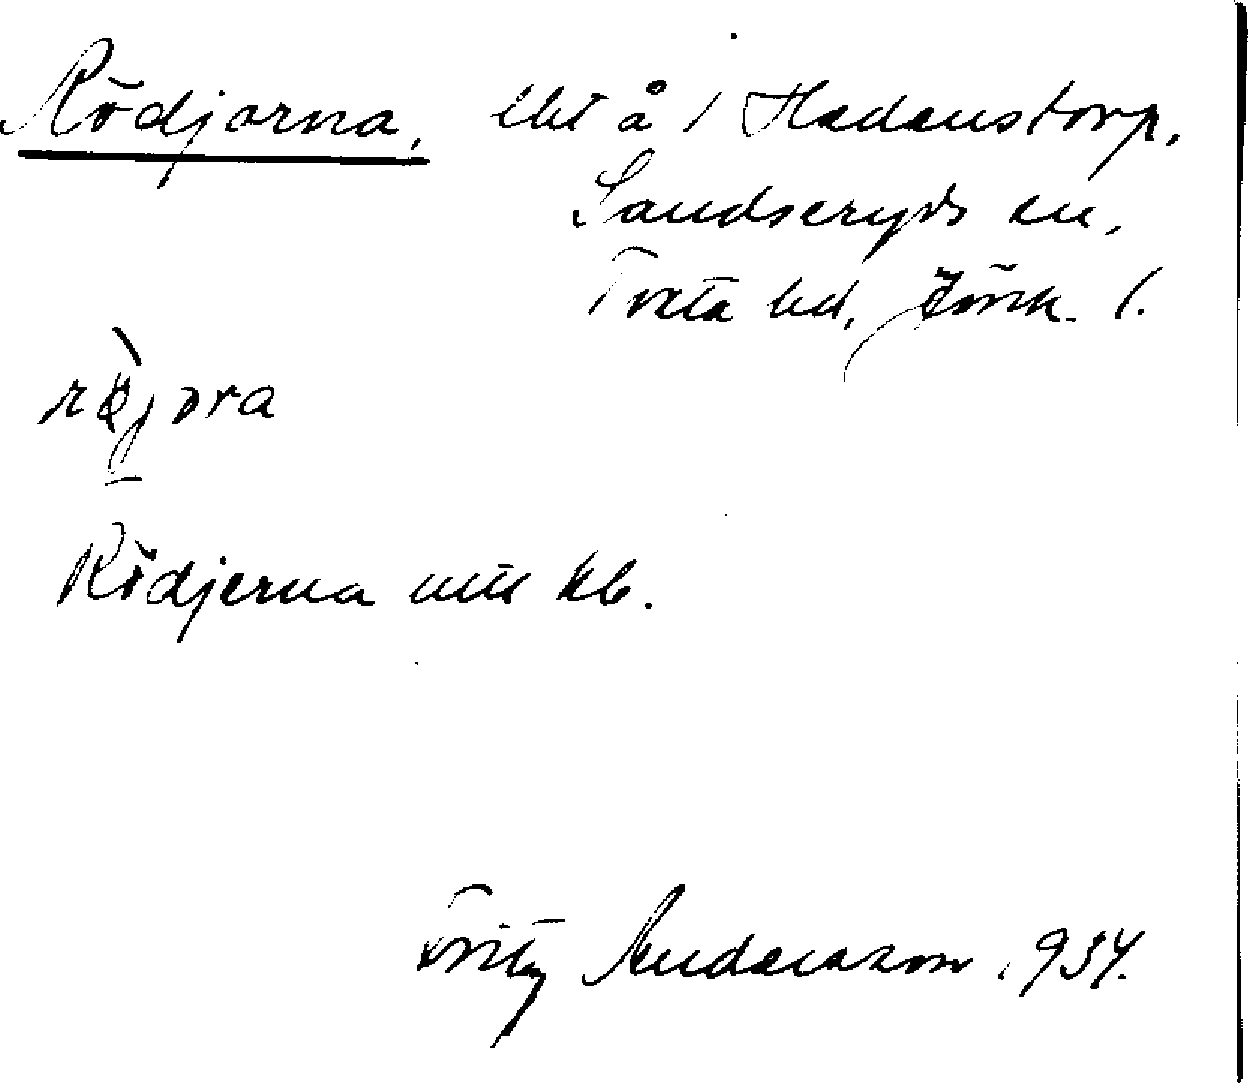 Rödjorna, lht å 1 Hedenstorp,
Sandseryds sn,
Tveta hd, Jönk. l.
röjora
Rödjerna mtl kb.
Fritz Andersson 1934.